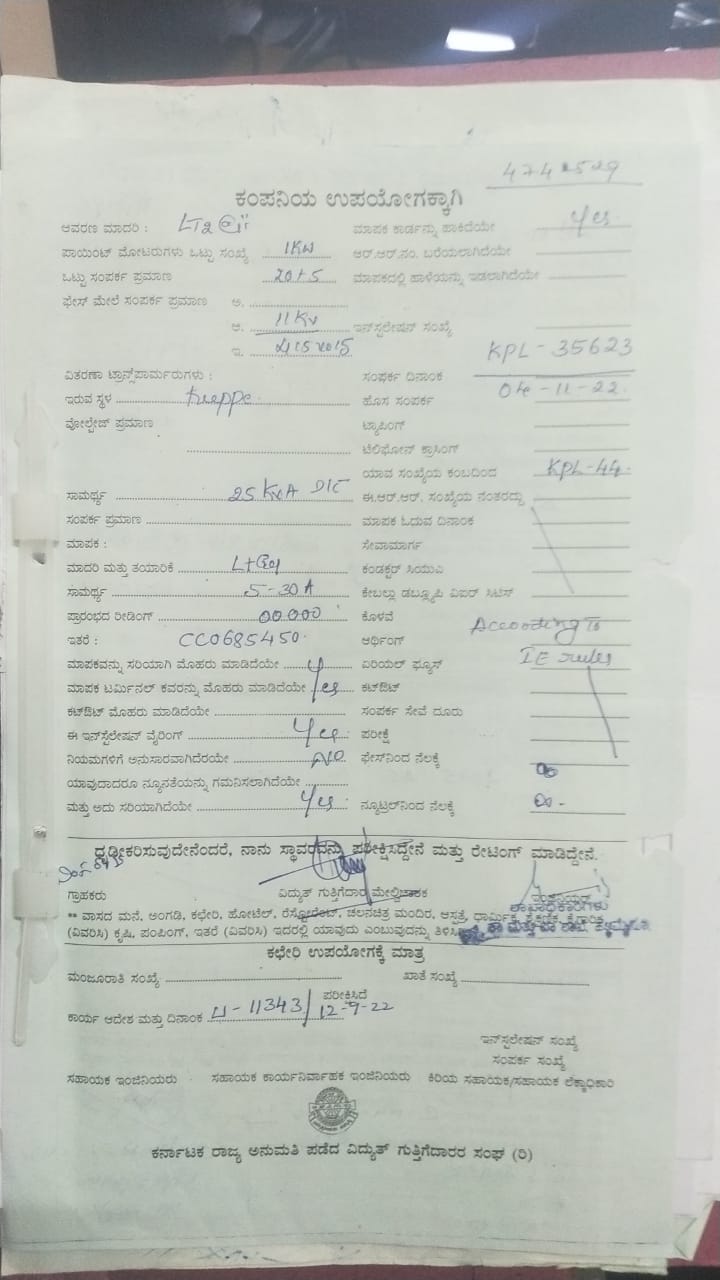 4742529
ಕಂಪನಿಯ ಉಪಯೋಗಕ್ಕಾಗಿ
ಆವರಣ ಮಾದರಿ : LT2 ಮಾಪಕ ಕಾರ್ಡನ್ನು ಹಾಕಿದೆಯೇ Yes
ಪಾಯಿಂಟ್ ಮೋಟರುಗಳು ಒಟ್ಟು ಸಂಖ್ಯೆ 1KW ಆರ್.ಆರ್.ನಂ. ಬರೆಯಲಾಗಿದೆಯೇ
ಒಟ್ಟು ಸಂಪರ್ಕ ಪ್ರಮಾಣ 20+5 ಮಾಪಕದಲ್ಲಿ ಹಾಳೆಯನ್ನು ಇಡಲಾಗಿದೆಯೇ
ಫೇಸ್ ಮೇಲೆ ಸಂಪರ್ಕ ಪ್ರಮಾಣ ಅ.
ಆ. 11KV ಇನ್‌ಸ್ಟಲೇಷನ್ ಸಂಖ್ಯೆ
ಇ. KPL-35623
ವಿತರಣಾ ಟ್ರಾನ್ಸ್‌ಪಾರ್ಮರುಗಳು : ಸಂಪರ್ಕ ದಿನಾಂಕ 04-11-22
ಇರುವ ಸ್ಥಳ ಹೊಸ ಸಂಪರ್ಕ
ವೋಲ್ಟೇಜ್ ಪ್ರಮಾಣ ಟ್ಯಾಪಿಂಗ್
ಟೆಲಿಫೋನ್ ಕ್ರಾಸಿಂಗ್
ಯಾವ ಸಂಖ್ಯೆಯ ಕಂಬದಿಂದ KPL-44.
ಸಾಮರ್ಥ್ಯ 25 KVA ಈ.ಆರ್.ಆರ್. ಸಂಖ್ಯೆಯ ನಂತರದ್ದು
ಸಂಪರ್ಕ ಪ್ರಮಾಣ ಮಾಪಕ ಓದುವ ದಿನಾಂಕ
ಮಾಪಕ : ಸೇವಾಮಾರ್ಗ
ಮಾದರಿ ಮತ್ತು ತಯಾರಿಕೆ ಕಂಡಕ್ಟರ್ ಸಿಯುಎ
ಸಾಮರ್ಥ್ಯ 5-30A ಕೇಬಲ್ಲು ಡಬ್ಲ್ಯೂಪಿ
ಪ್ರಾರಂಭದ ರೀಡಿಂಗ್ 00.000 ಕೊಳವೆ
ಇತರೆ : CC0685450. ಆರ್ಥಿಂಗ್ According To
ಮಾಪಕವನ್ನು ಸರಿಯಾಗಿ ಮೊಹರು ಮಾಡಿದೆಯೇ ಏರಿಯಲ್ ಫ್ಯೂಸ್ IE rules
ಮಾಪಕ ಟರ್ಮಿನಲ್ ಕವರನ್ನು ಮೊಹರು ಮಾಡಿದೆಯೇ Yes ಕಟ್‌ಔಟ್
ಕಟ್‌ಔಟ್ ಮೊಹರು ಮಾಡಿದೆಯೇ ಸಂಪರ್ಕ ಸೇವೆ ದೂರು
ಈ ಇನ್‌ಸ್ಟಲೇಷನ್ ವೈರಿಂಗ್ Yes ಪರೀಕ್ಷೆ
ನಿಯಮಗಳಿಗೆ ಅನುಸಾರವಾಗಿದೆಯೇ No ಫೇಸ್‌ನಿಂದ ನೆಲಕ್ಕೆ
ಯಾವುದಾದರೂ ನ್ಯೂನತೆಯನ್ನು ಗಮನಿಸಲಾಗಿದೆಯೇ
ಮತ್ತು ಅದು ಸರಿಯಾಗಿದೆಯೇ Yes ನ್ಯೂಟ್ರಲ್‌ನಿಂದ ನೆಲಕ್ಕೆ
ಧೃಢೀಕರಿಸುವುದೇನೆಂದರೆ, ನಾನು ಸ್ಥಾವರವನ್ನು ಪರೀಕ್ಷಿಸಿದ್ದೇನೆ ಮತ್ತು ರೇಟಿಂಗ್ ಮಾಡಿದ್ದೇನೆ.
ಗ್ರಾಹಕರು ವಿದ್ಯುತ್ ಗುತ್ತಿಗೆದಾರ ಮೇಲ್ವಿಚಾರಕ
** ವಾಸದ ಮನೆ, ಅಂಗಡಿ, ಕಛೇರಿ, ಹೋಟೆಲ್, ರೆಸ್ಟೋರೆಂಟ್, ಚಲನಚಿತ್ರ ಮಂದಿರ, ಆಸ್ಪತ್ರೆ, ಧಾರ್ಮಿಕ, ಶೈಕ್ಷಣಿಕ, ಕೈಗಾರಿಕೆ
(ವಿವರಿಸಿ) ಕೃಷಿ, ಪಂಪಿಂಗ್, ಇತರೆ (ವಿವರಿಸಿ) ಇದರಲ್ಲಿ ಯಾವುದು ಎಂಬುವುದನ್ನು
ಕಛೇರಿ ಉಪಯೋಗಕ್ಕೆ ಮಾತ್ರ
ಮಂಜೂರಾತಿ ಸಂಖ್ಯೆ ಖಾತೆ ಸಂಖ್ಯೆ
ಪರೀಕ್ಷಿಸಿದೆ
ಕಾರ್ಯ ಆದೇಶ ಮತ್ತು ದಿನಾಂಕ 11343/ 12-9-22
ಇನ್‌ಸ್ಟಲೇಷನ್ ಸಂಖ್ಯೆ
ಸಂಪರ್ಕ ಸಂಖ್ಯೆ
ಸಹಾಯಕ ಇಂಜಿನಿಯರು ಸಹಾಯಕ ಕಾರ್ಯನಿರ್ವಾಹಕ ಇಂಜಿನಿಯರು ಕಿರಿಯ ಸಹಾಯಕ/ಸಹಾಯಕ ಲೆಕ್ಕಾಧಿಕಾರಿ
ಕರ್ನಾಟಕ ರಾಜ್ಯ ಅನುಮತಿ ಪಡೆದ ವಿದ್ಯುತ್ ಗುತ್ತಿಗೆದಾರರ ಸಂಘ (ರಿ)